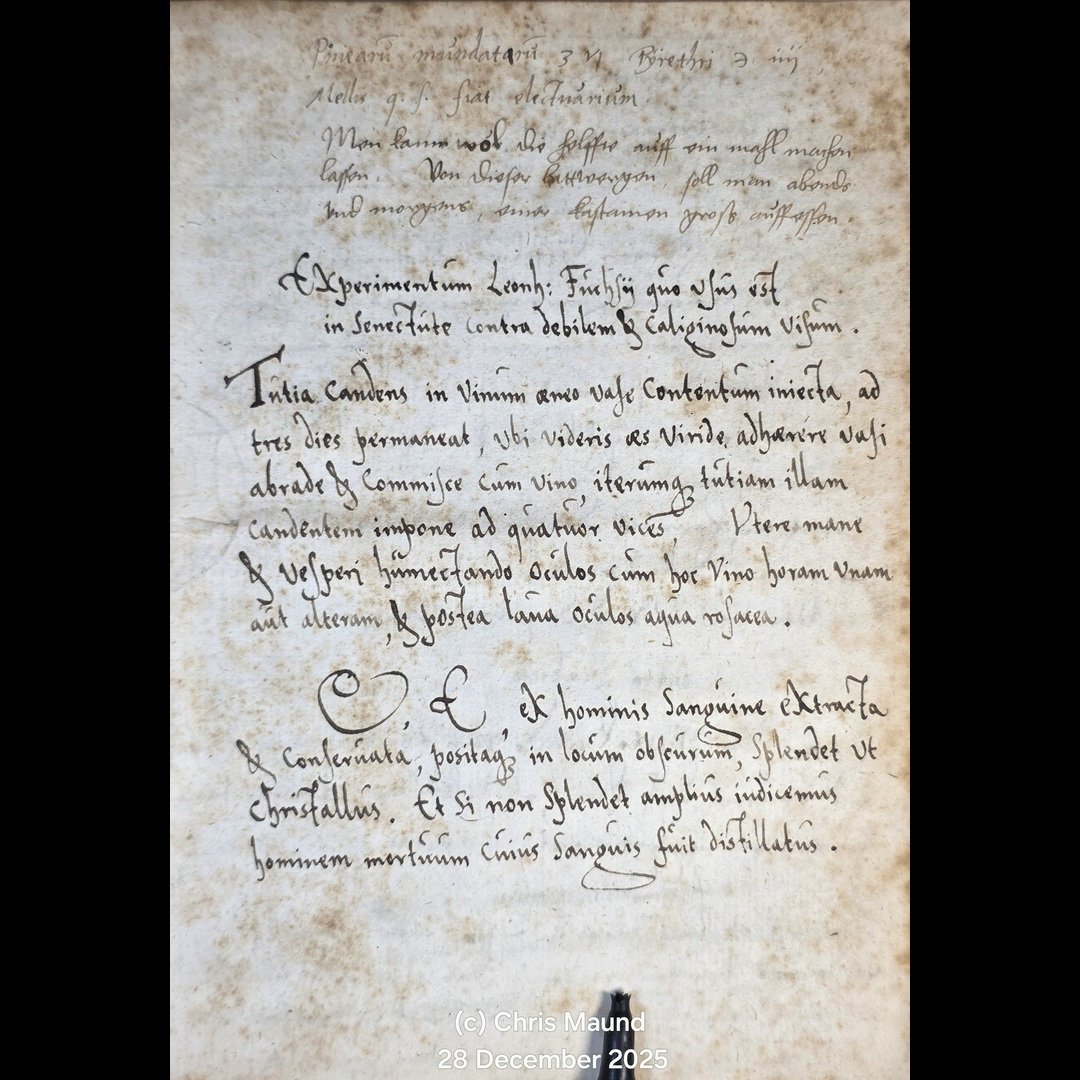 Pinearū mundatarū ʒ vj Pyrethri ℈ iiij,
Mellis q. s. fiat electuarium.
Men kann wol die helffte auff ein mahl machen
lassen. Von dieser lattwergen, soll man abends
und morgens, einer kastanien groß auff essen.
Experimentum Leonh: Fuchsij quo usus est
in Senectute contra debilem & caliginosum Visum.
Tutia candens in Vinum æneo vase contentum iniecta, ad
tres dies permaneat, ubi videris æs viride adhærere vasi
abrade & commisce cum vino, iterumq; tutiam illam
candentem impone ad quatuor vices, Utere mane
& vesperi humectando oculos cum hoc vino horam unam
aut alteram, & postea laua oculos aqua rosacea.
E ex hominis sanguine extracta
& conseruata, positaq; in locum obscurum, splendet ut
Christallus. Et si non splendet amplius iudicemus
hominem mortuum cuius sanguis fuit distillatus.
(c) Chris Maund
28 December 2025